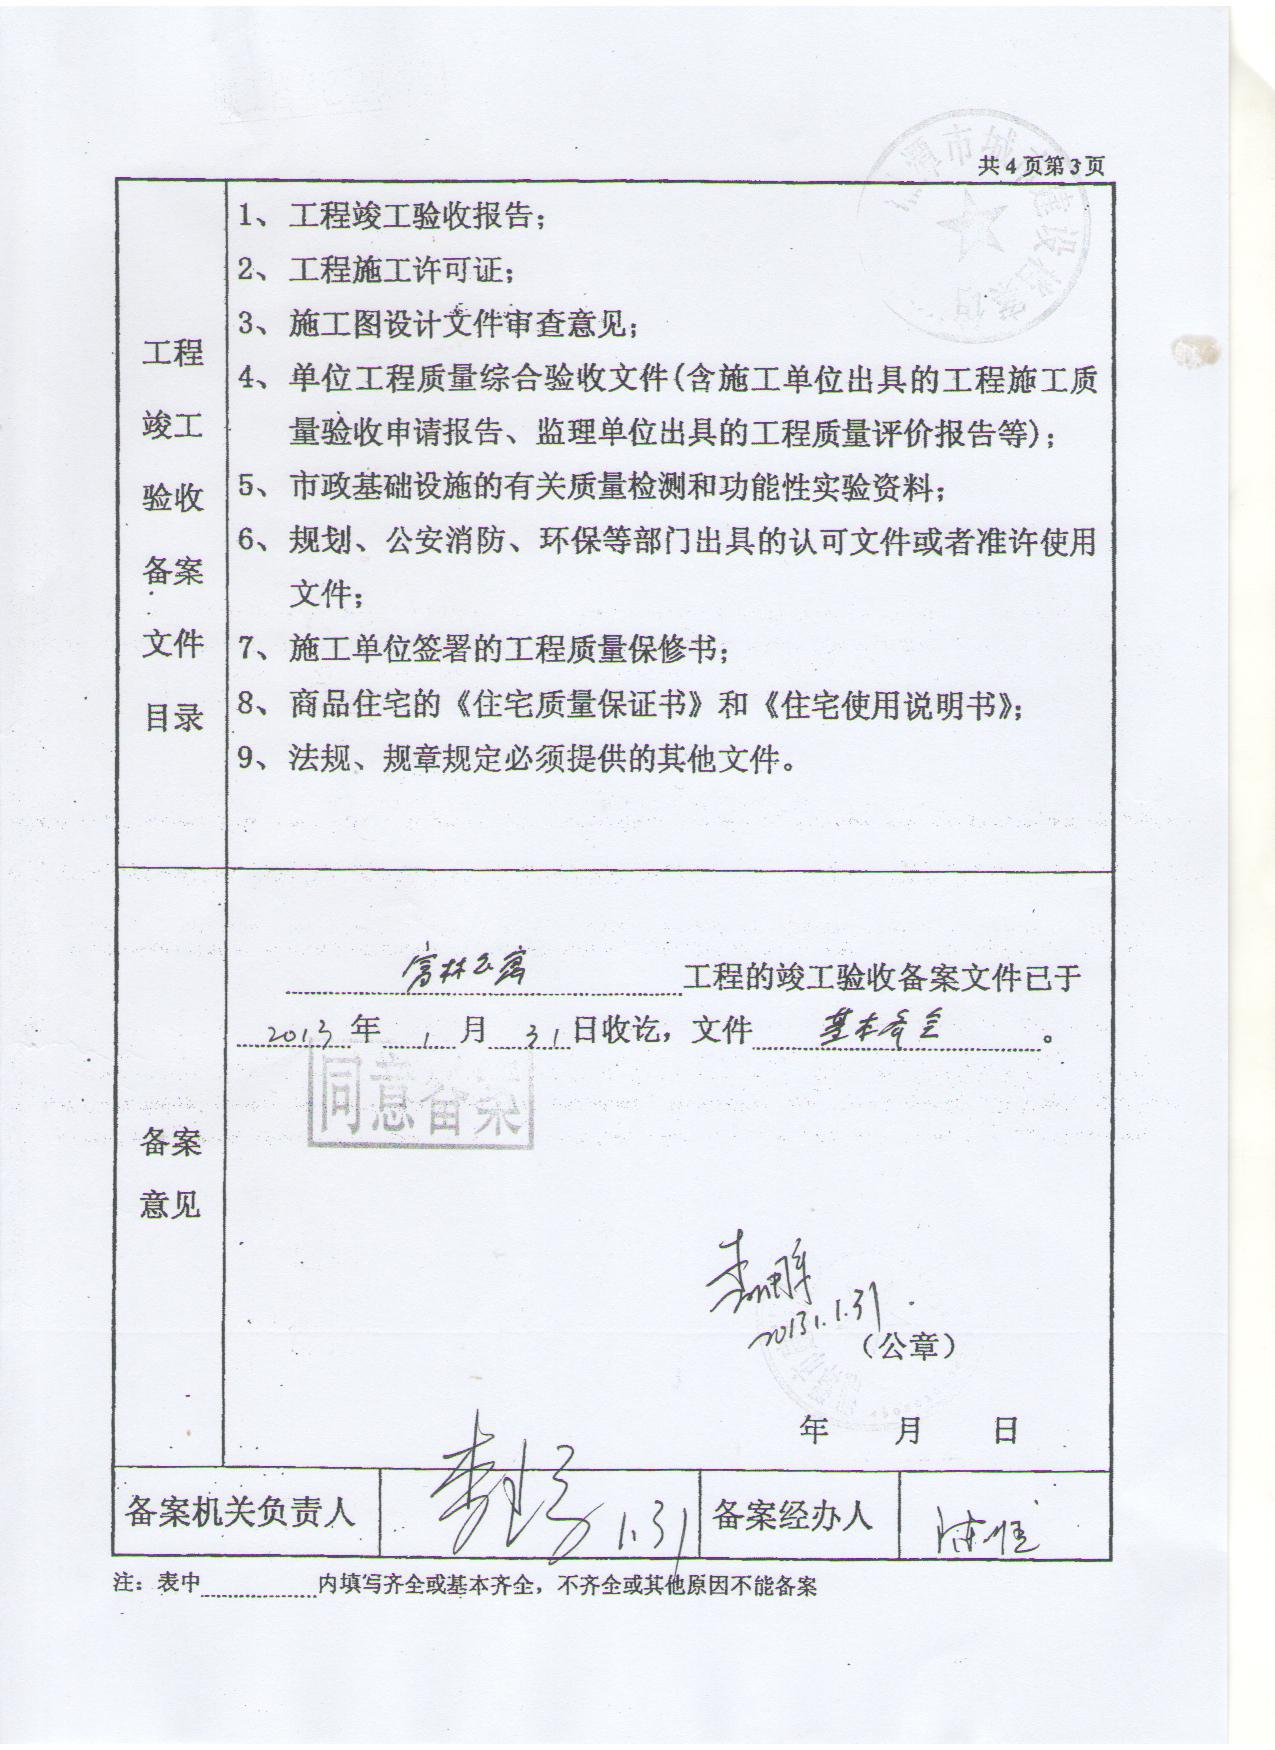 共4页第3页
工程
竣工
验收
备案
文件
目录
1、工程竣工验收报告；
2、工程施工许可证；
3、施工图设计文件审查意见；
4、单位工程质量综合验收文件(含施工单位出具的工程施工质
量验收申请报告、监理单位出具的工程质量评价报告等)；
5、市政基础设施的有关质量检测和功能性实验资料；
6、规划、公安消防、环保等部门出具的认可文件或者准许使用
文件；
7、施工单位签署的工程质量保修书；
8、商品住宅的《住宅质量保证书》和《住宅使用说明书》；
9、法规、规章规定必须提供的其他文件。
备案
意见
富林公寓工程的竣工验收备案文件已于
2013年1月31日收讫，文件基本齐全。
同意备案
2013.1.31
（公章）
年 月 日
备案机关负责人 1.31 备案经办人
注：表中 内填写齐全或基本齐全，不齐全或其他原因不能备案